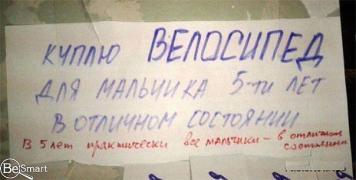 КУПЛЮ ВЕЛОСИПЕД
ДЛЯ МАЛЬЧИКА 5-ТИ ЛЕТ
В ОТЛИЧНОМ СОСТОЯНИИ
В 5 лет практически все мальчики - в отличном
состоянии
Be Smart